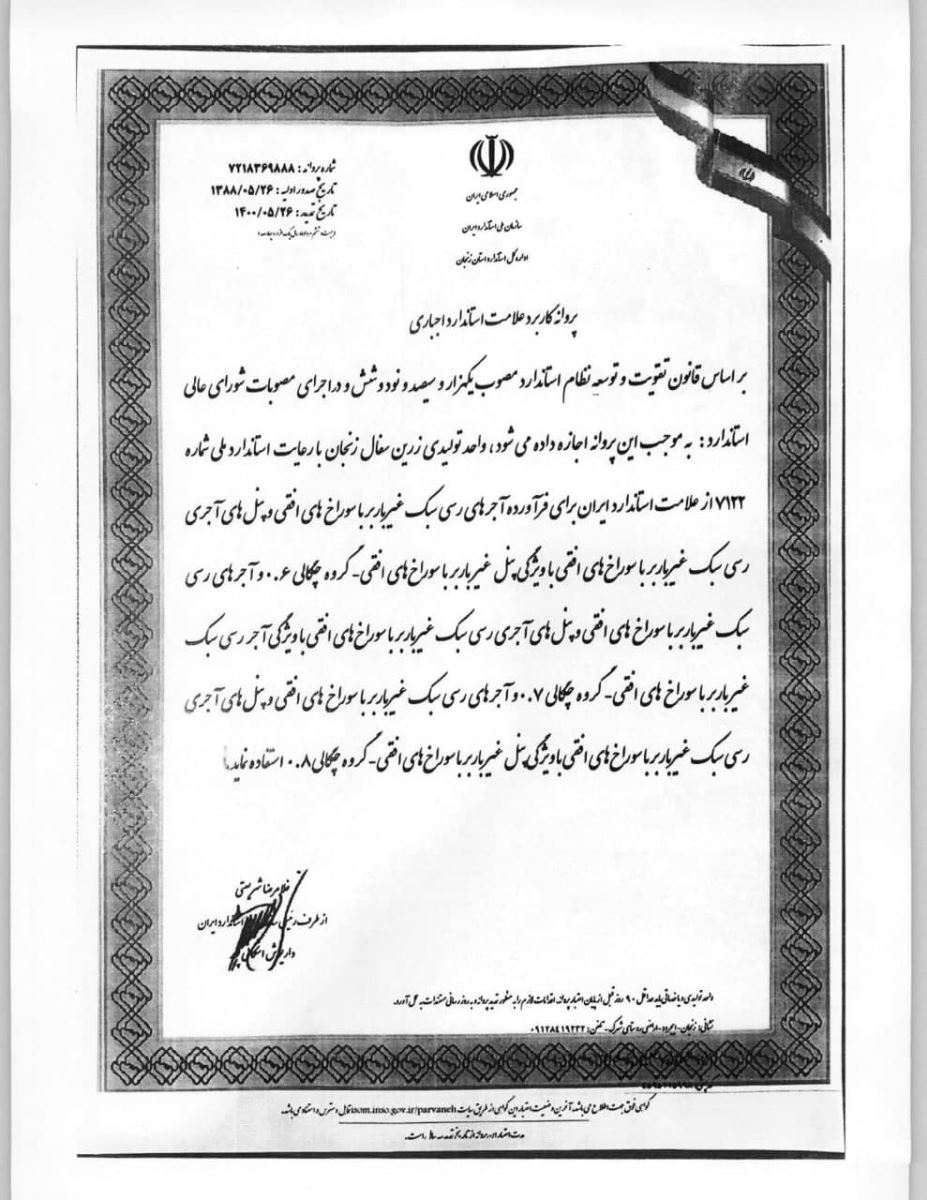 جمهوری اسلامی ایران
سازمان ملی استاندارد ایران
اداره کل استاندارد استان زنجان
شماره پروانه : ۷۲۱۸۳۶۹۸۸۸
تاریخ صدور اولیه : ۱۳۸۸/۰۵/۲۶
تاریخ تمدید : ۱۴۰۰/۰۵/۲۶
پروانه کاربرد علامت استاندارد اجباری
بر اساس قانون تقویت و توسعه نظام استاندارد مصوب یکهزار و سیصد و نود و شش و در اجرای مصوبات شورای عالی
استاندارد : به موجب این پروانه اجازه داده می شود، واحد تولیدی زرین سفال زنجان با رعایت استاندارد ملی شماره
۷۱۲۲ از علامت استاندارد ایران برای فرآورده آجرهای رسی سبک غیرباربر با سوراخ های افقی و پنل های آجری
رسی سبک غیرباربر با سوراخ های افقی با ویژگی پنل غیرباربر با سوراخ های افقی - گروه چگالی ۰.۶ و آجرهای رسی
سبک غیرباربر با سوراخ های افقی و پنل های آجری رسی سبک غیرباربر با سوراخ های افقی با ویژگی آجر رسی سبک
غیرباربر با سوراخ های افقی - گروه چگالی ۰.۷ و آجرهای رسی سبک غیرباربر با سوراخ های افقی و پنل های آجری
رسی سبک غیرباربر با سوراخ های افقی با ویژگی پنل غیرباربر با سوراخ های افقی - گروه چگالی ۰.۸ استفاده نماید.
غلامرضا شریعتی
از طرف رئیس استاندارد ایران
واحد تولیدی و یا خدماتی باید حداقل ۹۰ روز قبل از پایان اعتبار پروانه اقدامات لازم را به منظور تمدید پروانه و به روز رسانی مستندات به عمل آورد.
نشانی : زنجان - ایجرود - اراضی روستای شهرک - تلفن : ۰۹۱۲۸۴۱۹۲۳۲
گواهی فوق جهت اطلاع می باشد. آخرین وضعیت اعتبار این گواهی از طریق سایت isom.inso.gov.ir/parvaneh قابل دسترس و استناد می باشد.
مدت اعتبار این پروانه از تاریخ تمدید سه سال است.